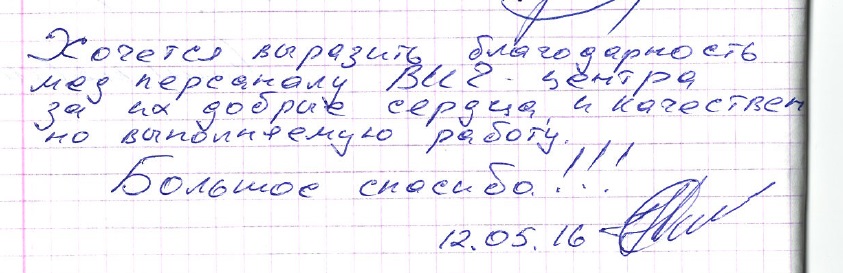 Хочется выразить благодарность
мед персаналу ВИЧ - центра
за их добрые сердца и качествен
но выполняемую работу.
Большое спасибо!!!
12.05.16